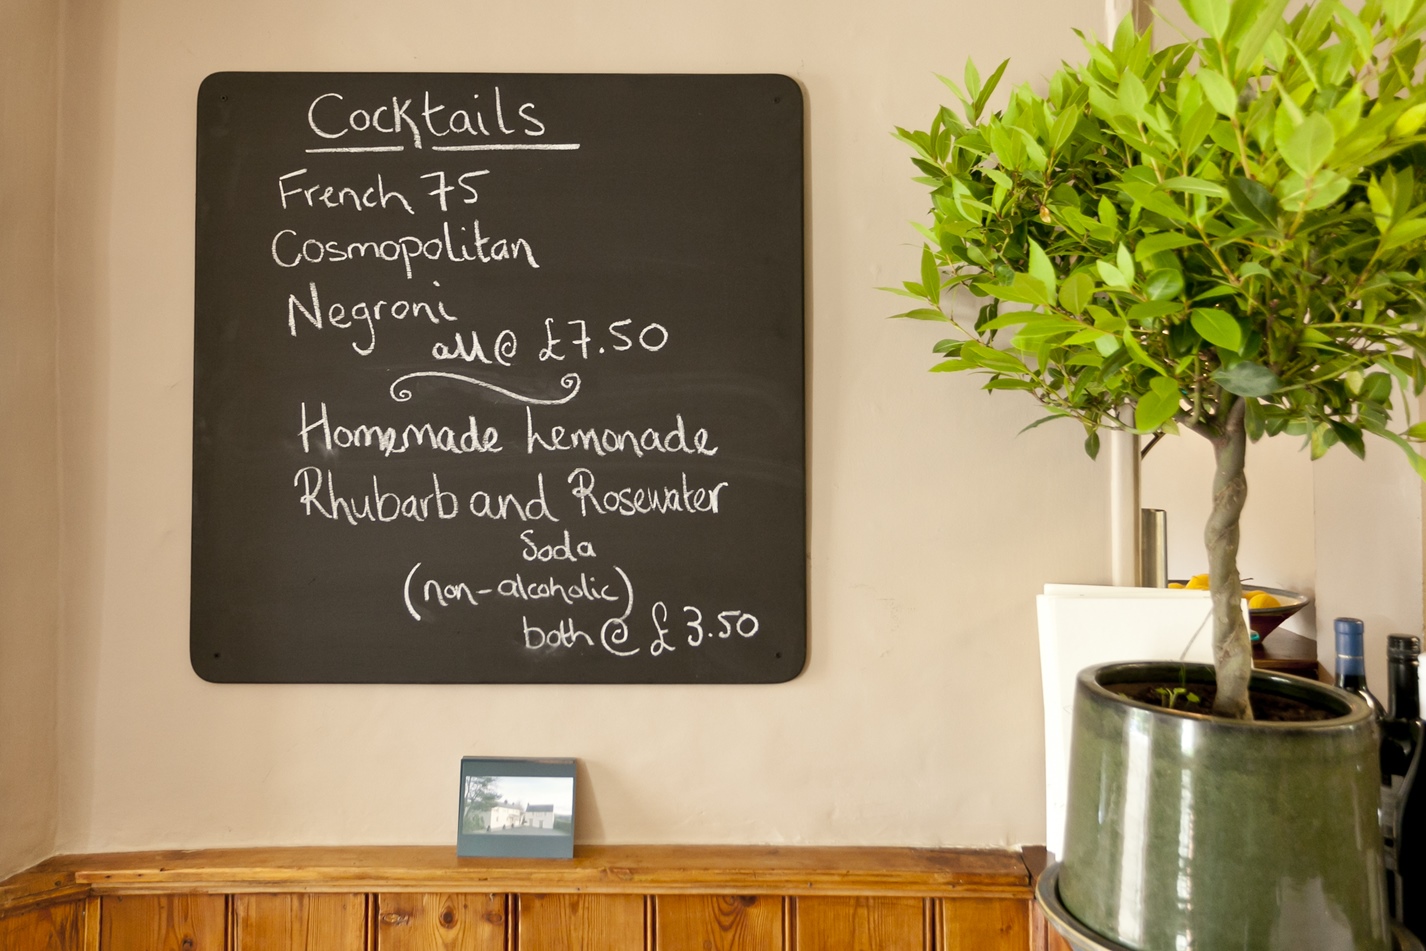 Cocktails
French 75
Cosmopolitan
Negroni
all @ £7.50
Homemade Lemonade
Rhubarb and Rosewater
Soda
(non-alcoholic)
both @ £3.50